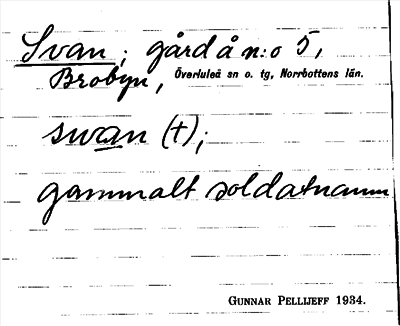 Svan; gård å n:o 5,
Brobyn, Överluleå sn o. tg, Norrbottens län.
svan (t);
gammalt soldatnamn
GUNNAR PELLIJEFF 1934.